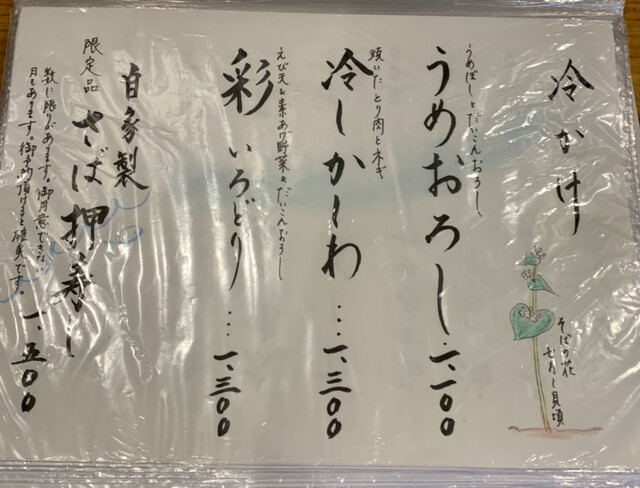 冷かけ
そばの花
七月〜見頃
うめぼしとだいこんおろし
うめおろし…一、一〇〇
焼いたとり肉とネギ
冷しかしわ…一、三〇〇
えび天&素あげ野菜&だいこんおろし
彩いろどり…一、三〇〇
自家製
限定品 さば押寿し
一、五〇〇
数に限りがあります。御用意できない
日もあります。御予約頂けると確実です。